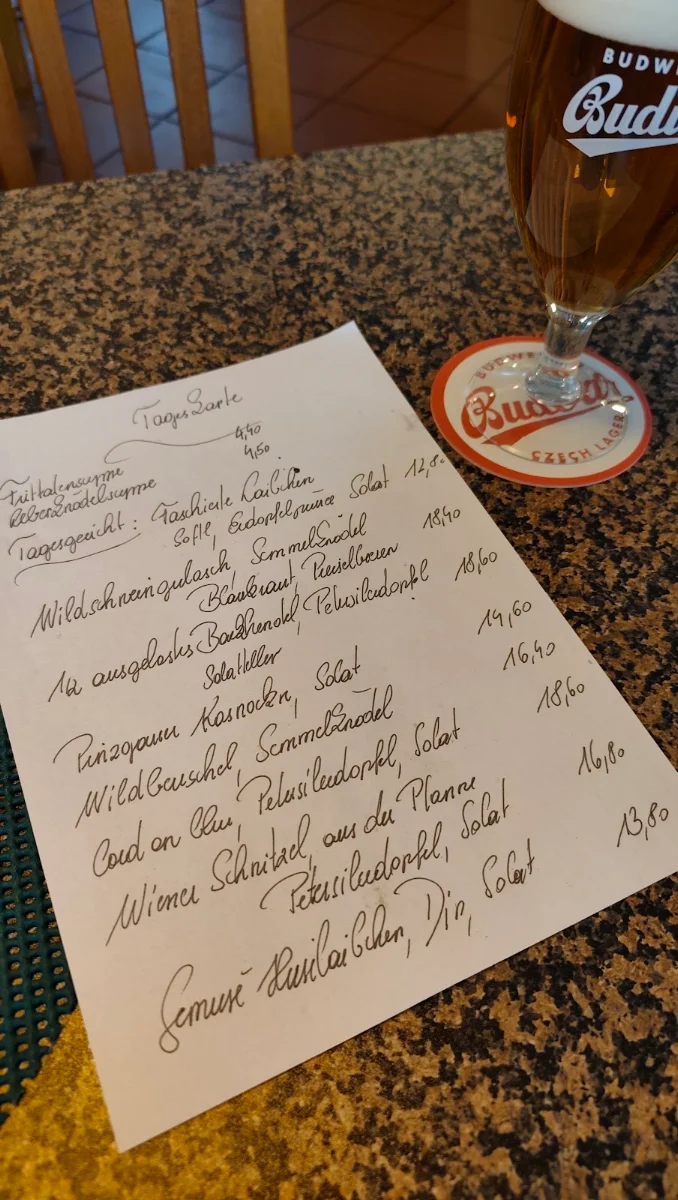 Tageskarte
Frittatensuppe 4,40
Leberknödelsuppe 4,50
Tagesgericht: Faschierte Laibchen
Saftl, Erdapfelpüree Salat 12,80
Wildschweingulasch, Semmelknödel
Blaukraut, Preiselbeeren 18,40
1/2 ausgelöstes Backhendel, Petersilerdäpfel 18,60
Salatteller
Pinzgauer Kasnocken, Salat 14,60
Wildbeuschel, Semmelknödel 16,40
Cord on bleu, Petersilerdäpfel, Salat 18,60
Wiener Schnitzel, aus der Pfanne
Petersilerdäpfel, Salat 16,80
Gemüse Hirselaibchen, Dip, Salat 13,80
BUDW
Budw
BUDW
Budvar
CZECH LAGER